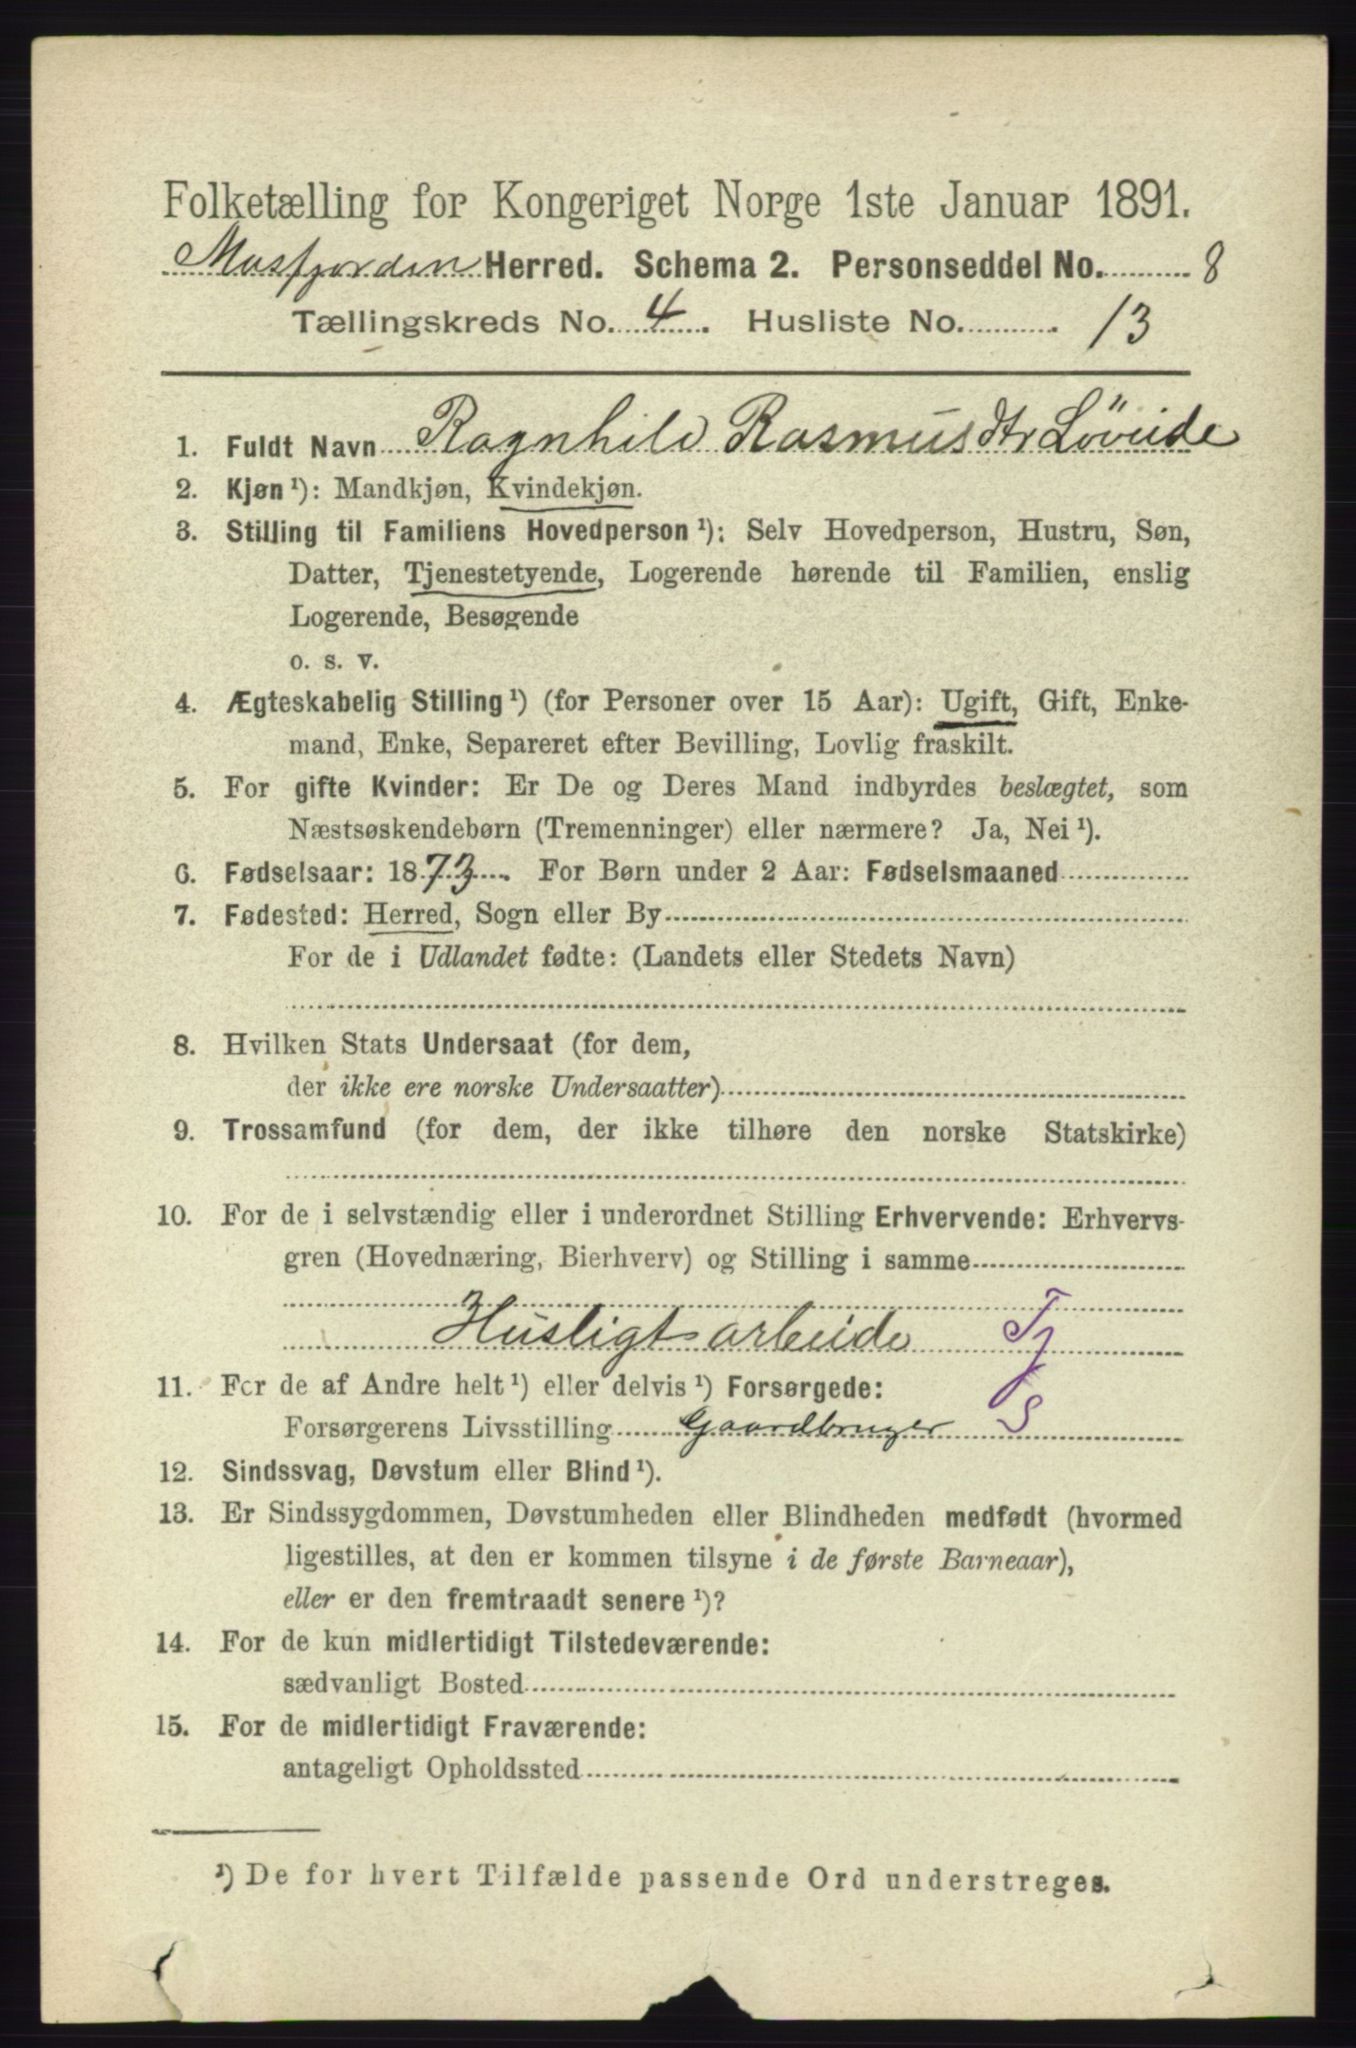 Folketælling for Kongeriget Norge 1ste Januar 1891.
Masfjorden Herred. Schema 2. Personseddel No. 8
Tællingskreds No. 4. Husliste No. 13
1. Fuldt Navn Ragnhild Rasmusdtr Löveide
2. Kjøn ¹): Mandkjøn, Kvindekjøn.
3. Stilling til Familiens Hovedperson ¹): Selv Hovedperson, Hustru, Søn,
Datter, Tjenestetyende, Logerende hørende til Familien, enslig
Logerende, Besøgende
o. s. v.
4. Ægteskabelig Stilling ¹) (for Personer over 15 Aar): Ugift, Gift, Enke-
mand, Enke, Separeret efter Bevilling, Lovlig fraskilt.
5. For gifte Kvinder: Er De og Deres Mand indbyrdes beslægtet, som
Næstsøskendebørn (Tremenninger) eller nærmere? Ja, Nei ¹).
6. Fødselsaar: 1873. For Børn under 2 Aar: Fødselsmaaned
7. Fødested: Herred, Sogn eller By
For de i Udlandet fødte: (Landets eller Stedets Navn)
8. Hvilken Stats Undersaat (for dem,
der ikke ere norske Undersaatter)
9. Trossamfund (for dem, der ikke tilhøre den norske Statskirke)
10. For de i selvstændig eller i underordnet Stilling Erhvervende: Erhvervs-
gren (Hovednæring, Bierhverv) og Stilling i samme
Husligt arbeide Tj
11. For de af Andre helt ¹) eller delvis ¹) Forsørgede:
Forsørgerens Livsstilling Gaardbruger S
12. Sindssvag, Døvstum eller Blind ¹).
13. Er Sindssygdommen, Døvstumheden eller Blindheden medfødt (hvormed
ligestilles, at den er kommen tilsyne i de første Barneaar),
eller er den fremtraadt senere ¹)?
14. For de kun midlertidigt Tilstedeværende:
sædvanligt Bosted
15. For de midlertidigt Fraværende:
antageligt Opholdssted
¹) De for hvert Tilfælde passende Ord understreges.